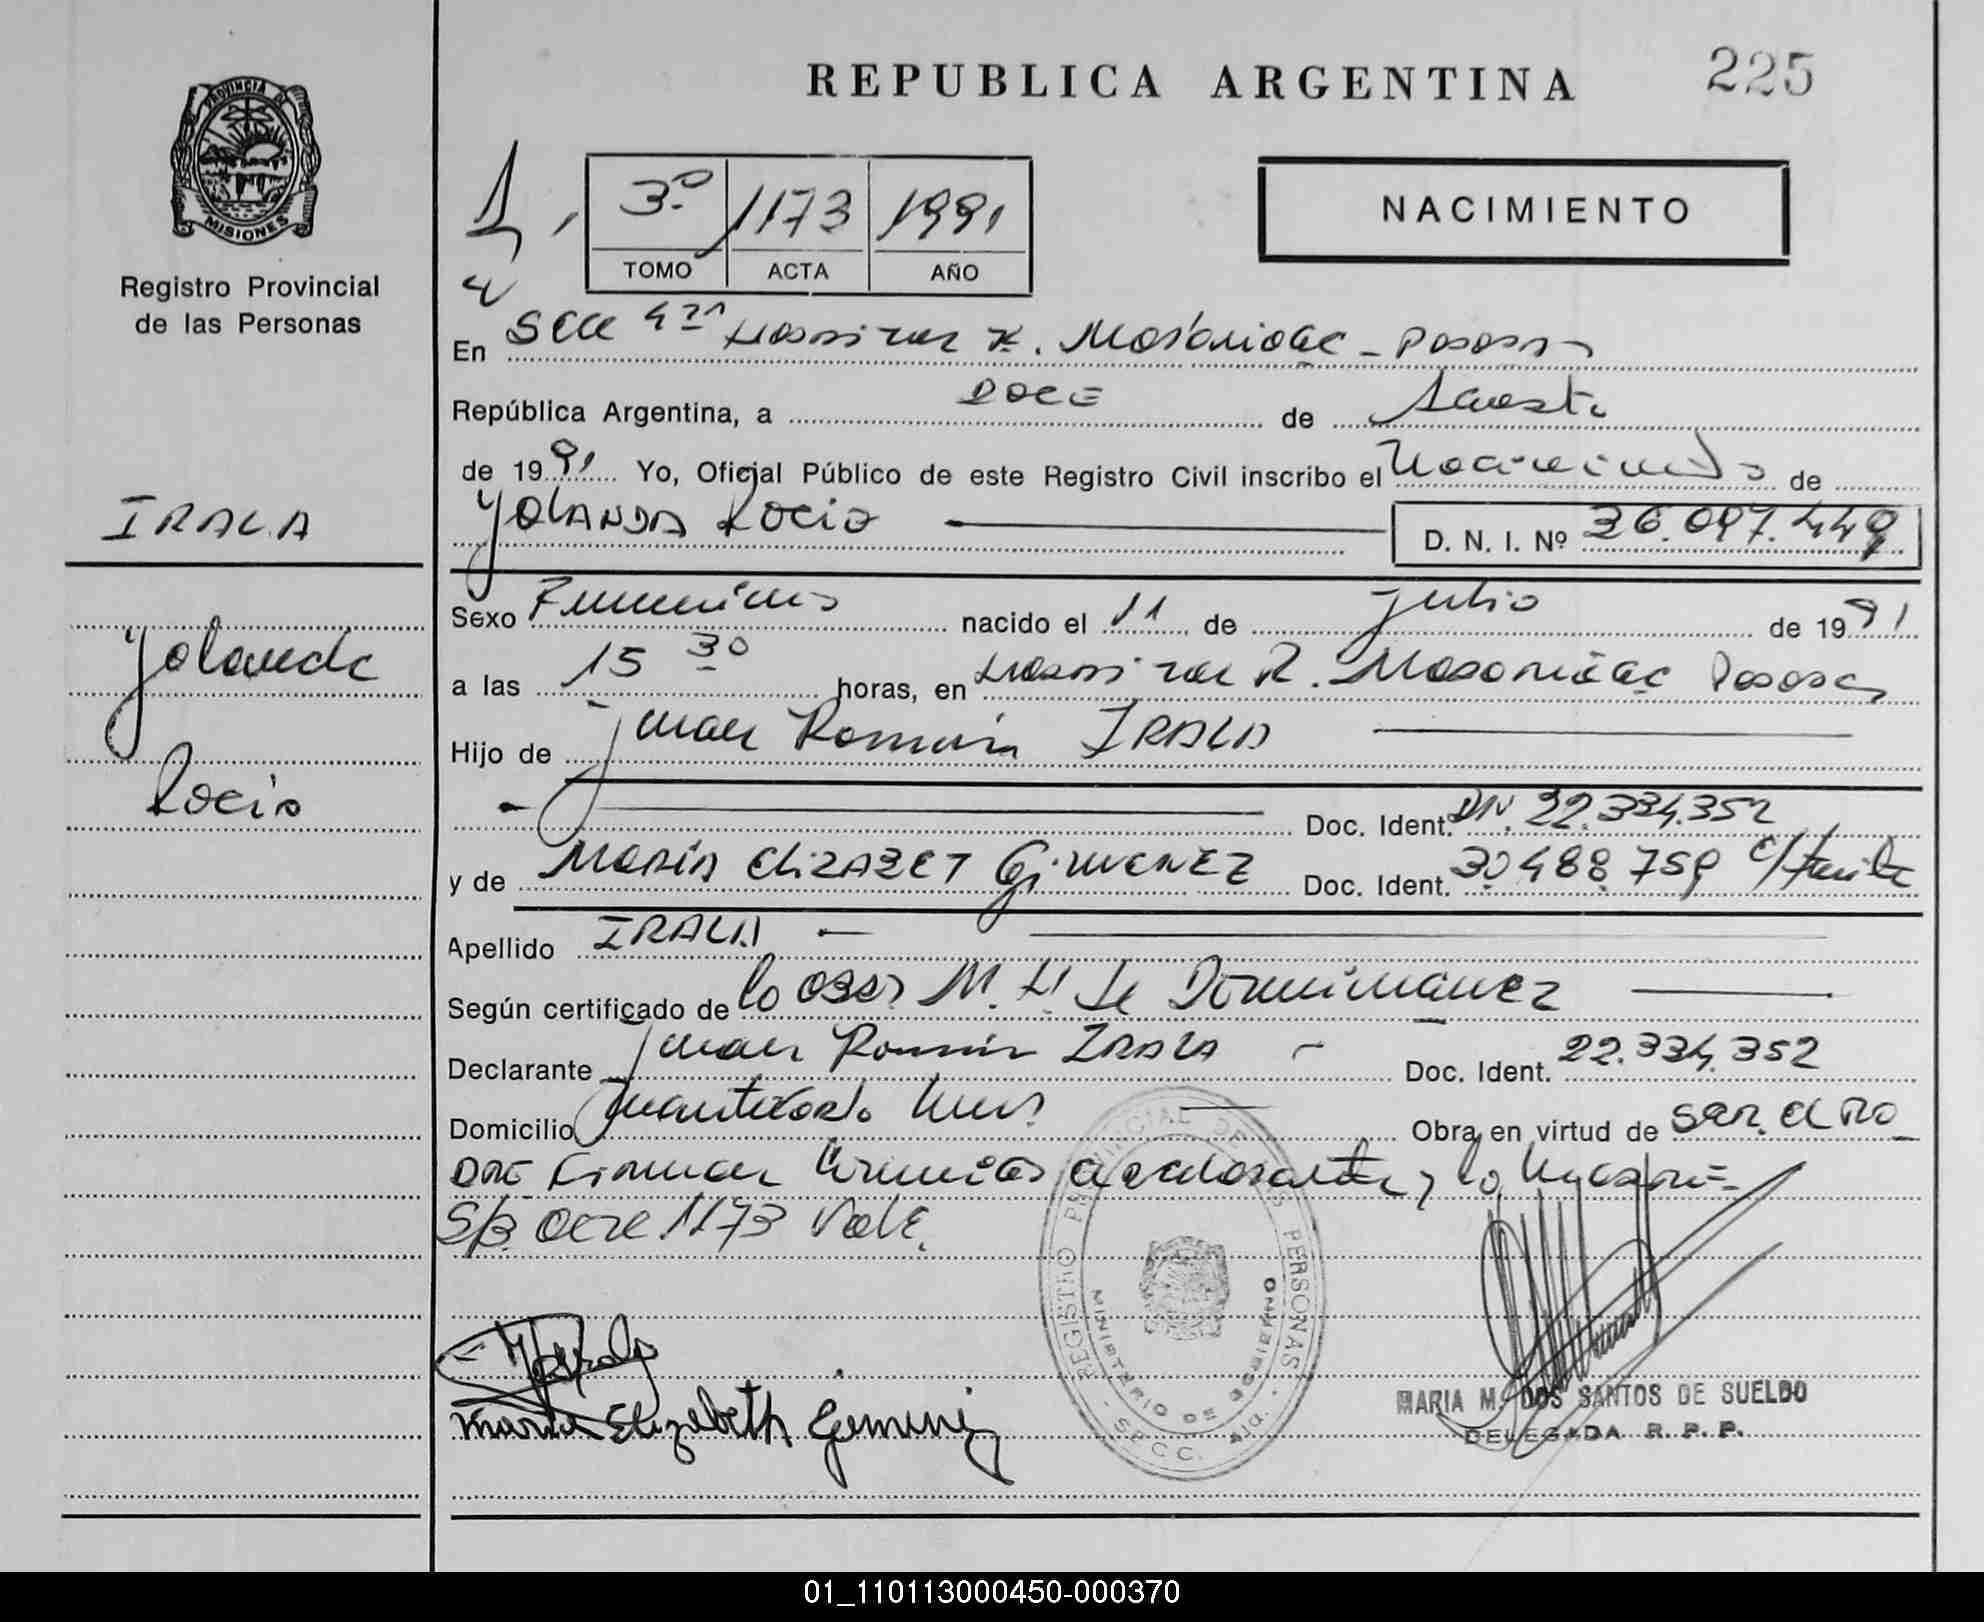 225
REPUBLICA ARGENTINA
PROVINCIA DE
MISIONES
Registro Provincial
de las Personas
3º 1173 1991
TOMO ACTA AÑO
NACIMIENTO
En Secc 4ta Hospital R. Madariaga - Posadas
República Argentina, a DOCE de Agosto
de 1991 Yo, Oficial Público de este Registro Civil inscribo el Nacimiento de
IRALA
YOLANDA Rocio D. N. I. Nº 36.097.449
Yolanda
Rocio
Sexo Femenino nacido el 11 de julio de 1991
a las 15 30 horas, en Hospital R. Madariaga Posadas
Hijo de Juan Ramón IRALA
Doc. Ident. DNI. 22.334.352
y de MARIA ELIZABET GIMENEZ Doc. Ident. 30488759
Apellido IRALA
Según certificado de la Obst M. H. de Dominguez
Declarante Juan Ramón IRALA Doc. Ident. 22.334.352
Domicilio Obra en virtud de ser el PA
DRE Firman la Madre
S/B. Acta 1173 Vale.
REGISTRO PROVINCIAL DE LAS PERSONAS
MINISTERIO DE GOBIERNO
SECC. 4ta.
Maria Elizabeth Gimenez
MARIA M. DOS SANTOS DE SUELDO
DELEGADA R. P. P.
01_110113000450-000370